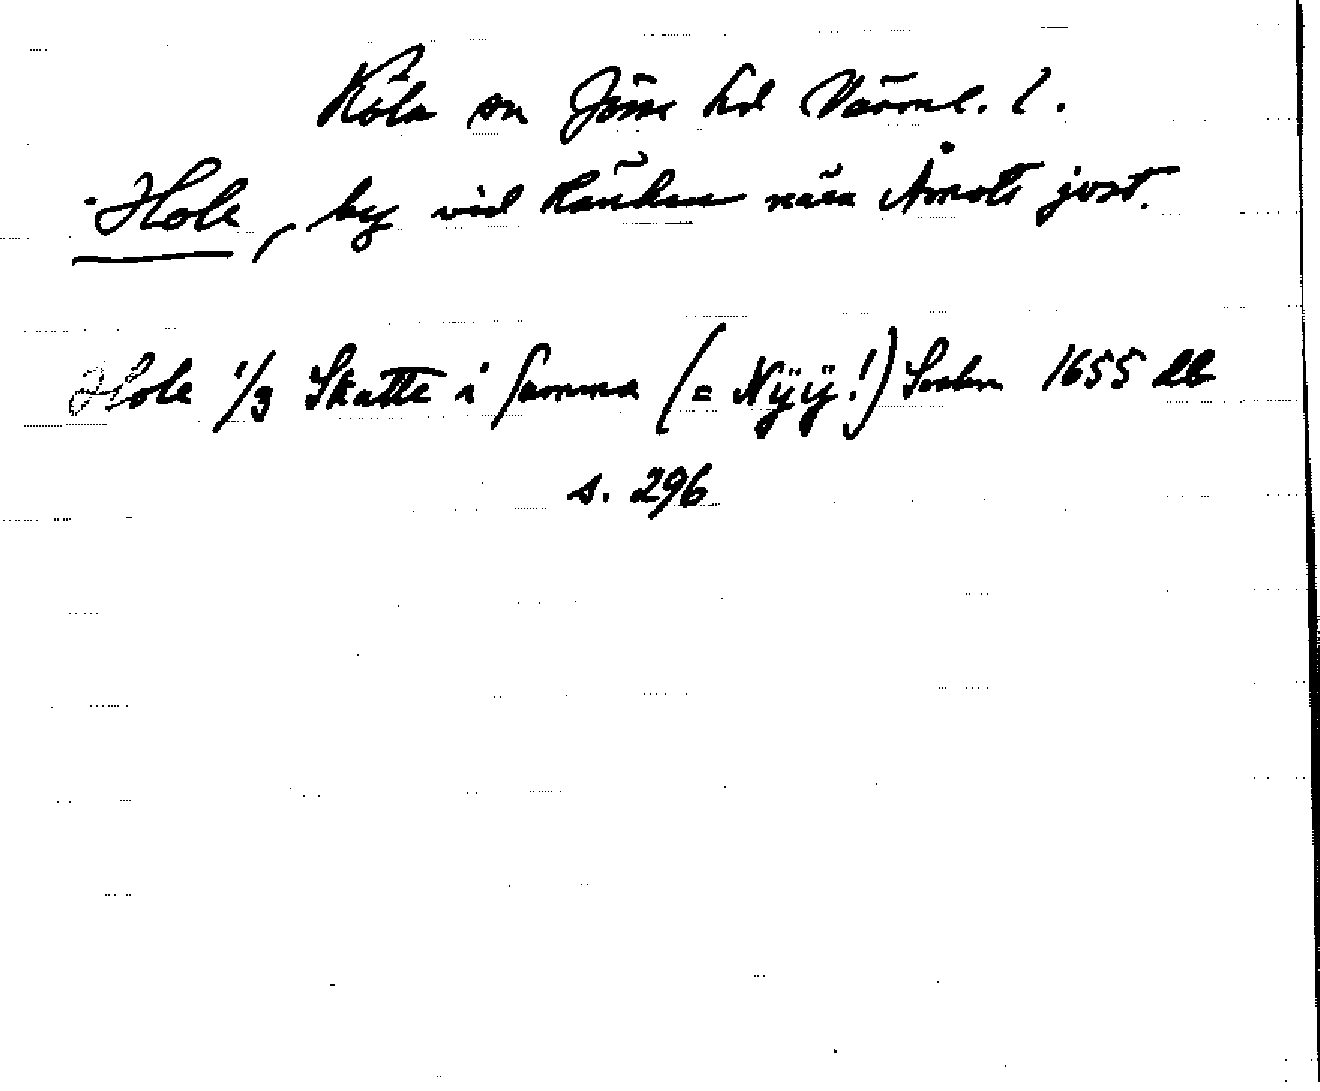 Köla sn Jösse hd Värml. l.
Hole, by vid Räcken nära Åmots jvst.
Hole 1/3 Skatte i samma (= Nÿÿ!) Sochn 1655 Jb
s. 296